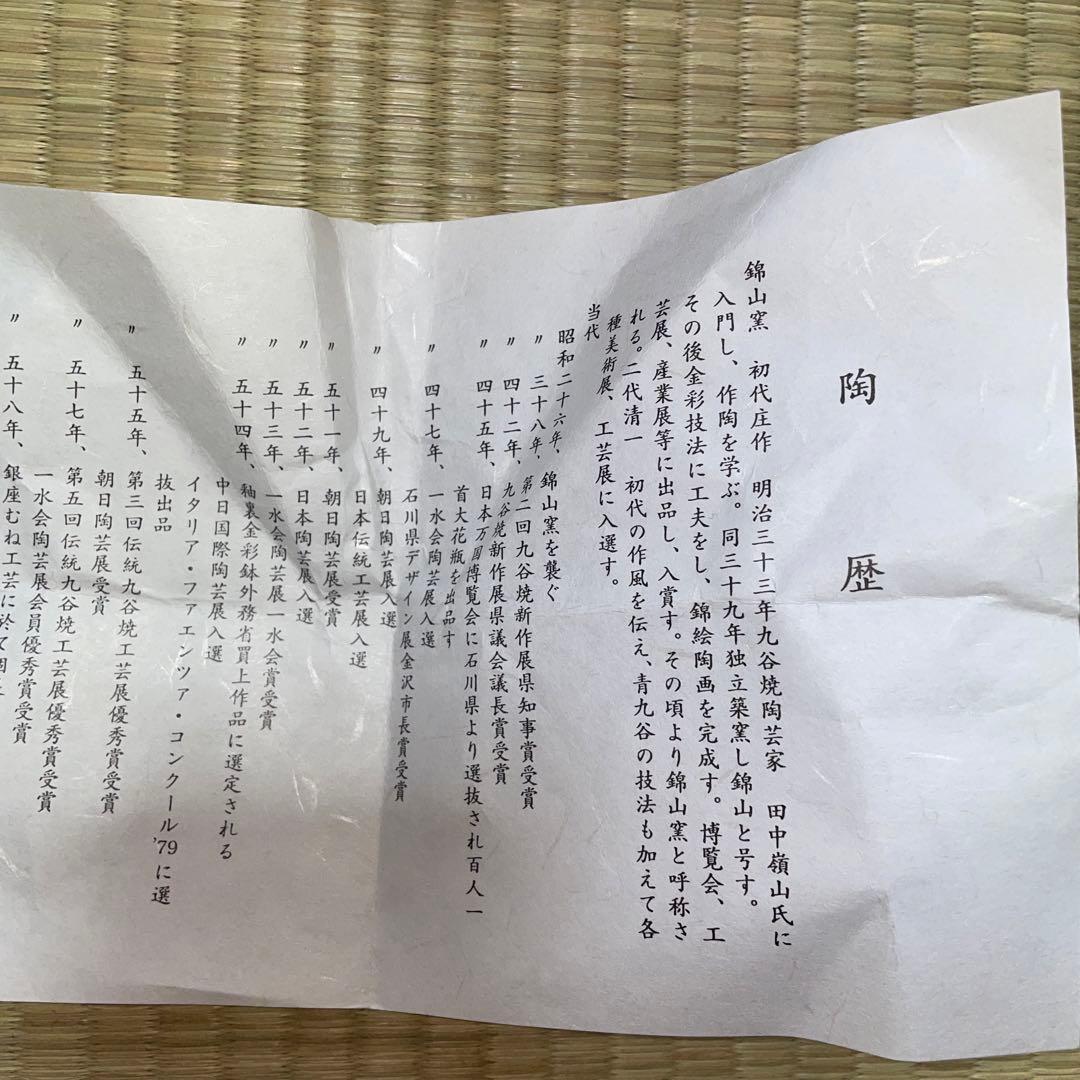 陶歴
錦山窯 初代庄作 明治三十三年九谷焼陶芸家 田中嶺山氏に
入門し、作陶を学ぶ。同三十九年独立築窯し錦山と号す。
その後金彩技法に工夫をし、錦絵陶画を完成す。博覧会、工
芸展、産業展等に出品し、入賞す。その頃より錦山窯と呼称さ
れる。二代清一 初代の作風を伝え、青九谷の技法も加えて各
種美術展、工芸展に入選す。
当代
昭和二十六年、錦山窯を襲ぐ
〃 三十八年、第二回九谷焼新作展県知事賞受賞
〃 四十二年、九谷焼新作展県議会議長賞受賞
〃 四十五年、日本万国博覧会に石川県より選抜され百人一
首大花瓶を出品す
〃 四十七年、一水会陶芸展入選
石川県デザイン展金沢市長賞受賞
〃 四十九年、朝日陶芸展入選
日本伝統工芸展入選
〃 五十一年、朝日陶芸展受賞
〃 五十二年、日本陶芸展入選
〃 五十三年、一水会陶芸展一水会賞受賞
〃 五十四年、釉裏金彩鉢外務省買上作品に選定される
中日国際陶芸展入選
イタリア・ファエンツァ・コンクール'79に選
抜出品
〃 五十五年、第三回伝統九谷焼工芸展優秀賞受賞
朝日陶芸展受賞
〃 五十七年、第五回伝統九谷焼工芸展優秀賞受賞
一水会陶芸展会員優秀賞受賞
〃 五十八年、銀座むね工芸に於て個